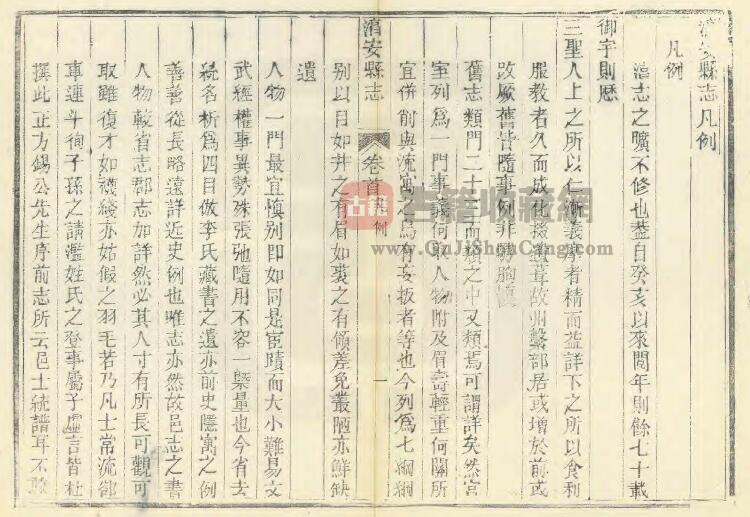 淯安縣志凡例
凡例
志之曠不修也蓋自癸亥以來閱年則餘七十載
御宇則歷
三聖人上之所以仁漸義摩者精而益詳下之所以食利
服教者久而成化掇 故州繫部居或增於前或
改厥舊皆隨事例非 臆
舊志類門二十三而類之中又類焉可謂詳矣然宮
室列爲一門事義何取人物附及眉壽輕重何關所
宜併削與流寓之爲有妄扳者等也今列爲七綱綱
別以目如井之有眉如裘之有領差免叢陋亦鮮缺
遺
安縣志
卷首
凡例
一
人物一門最宜慎別即如同是宦蹟而大小難易文
武經權事異勢殊張弛隨用不容一槩量也今省去
統名析爲四目倣李氏藏書之遺亦前史隱寓之例
善善從長略遠詳近史例也唯志亦然故邑志之書
人物較省志郡志加詳然必其人寸有所長可觀可
取雖復才如襪綫亦姑假之羽毛若乃凡士常流卻
車運斗徇子孫之請濫姓氏之登事屬子虛言皆杜
撰此正方錫公先生序前志所云邑士統譜耳不敢
古籍收藏網
www.GuJiShouCang.Com
古籍